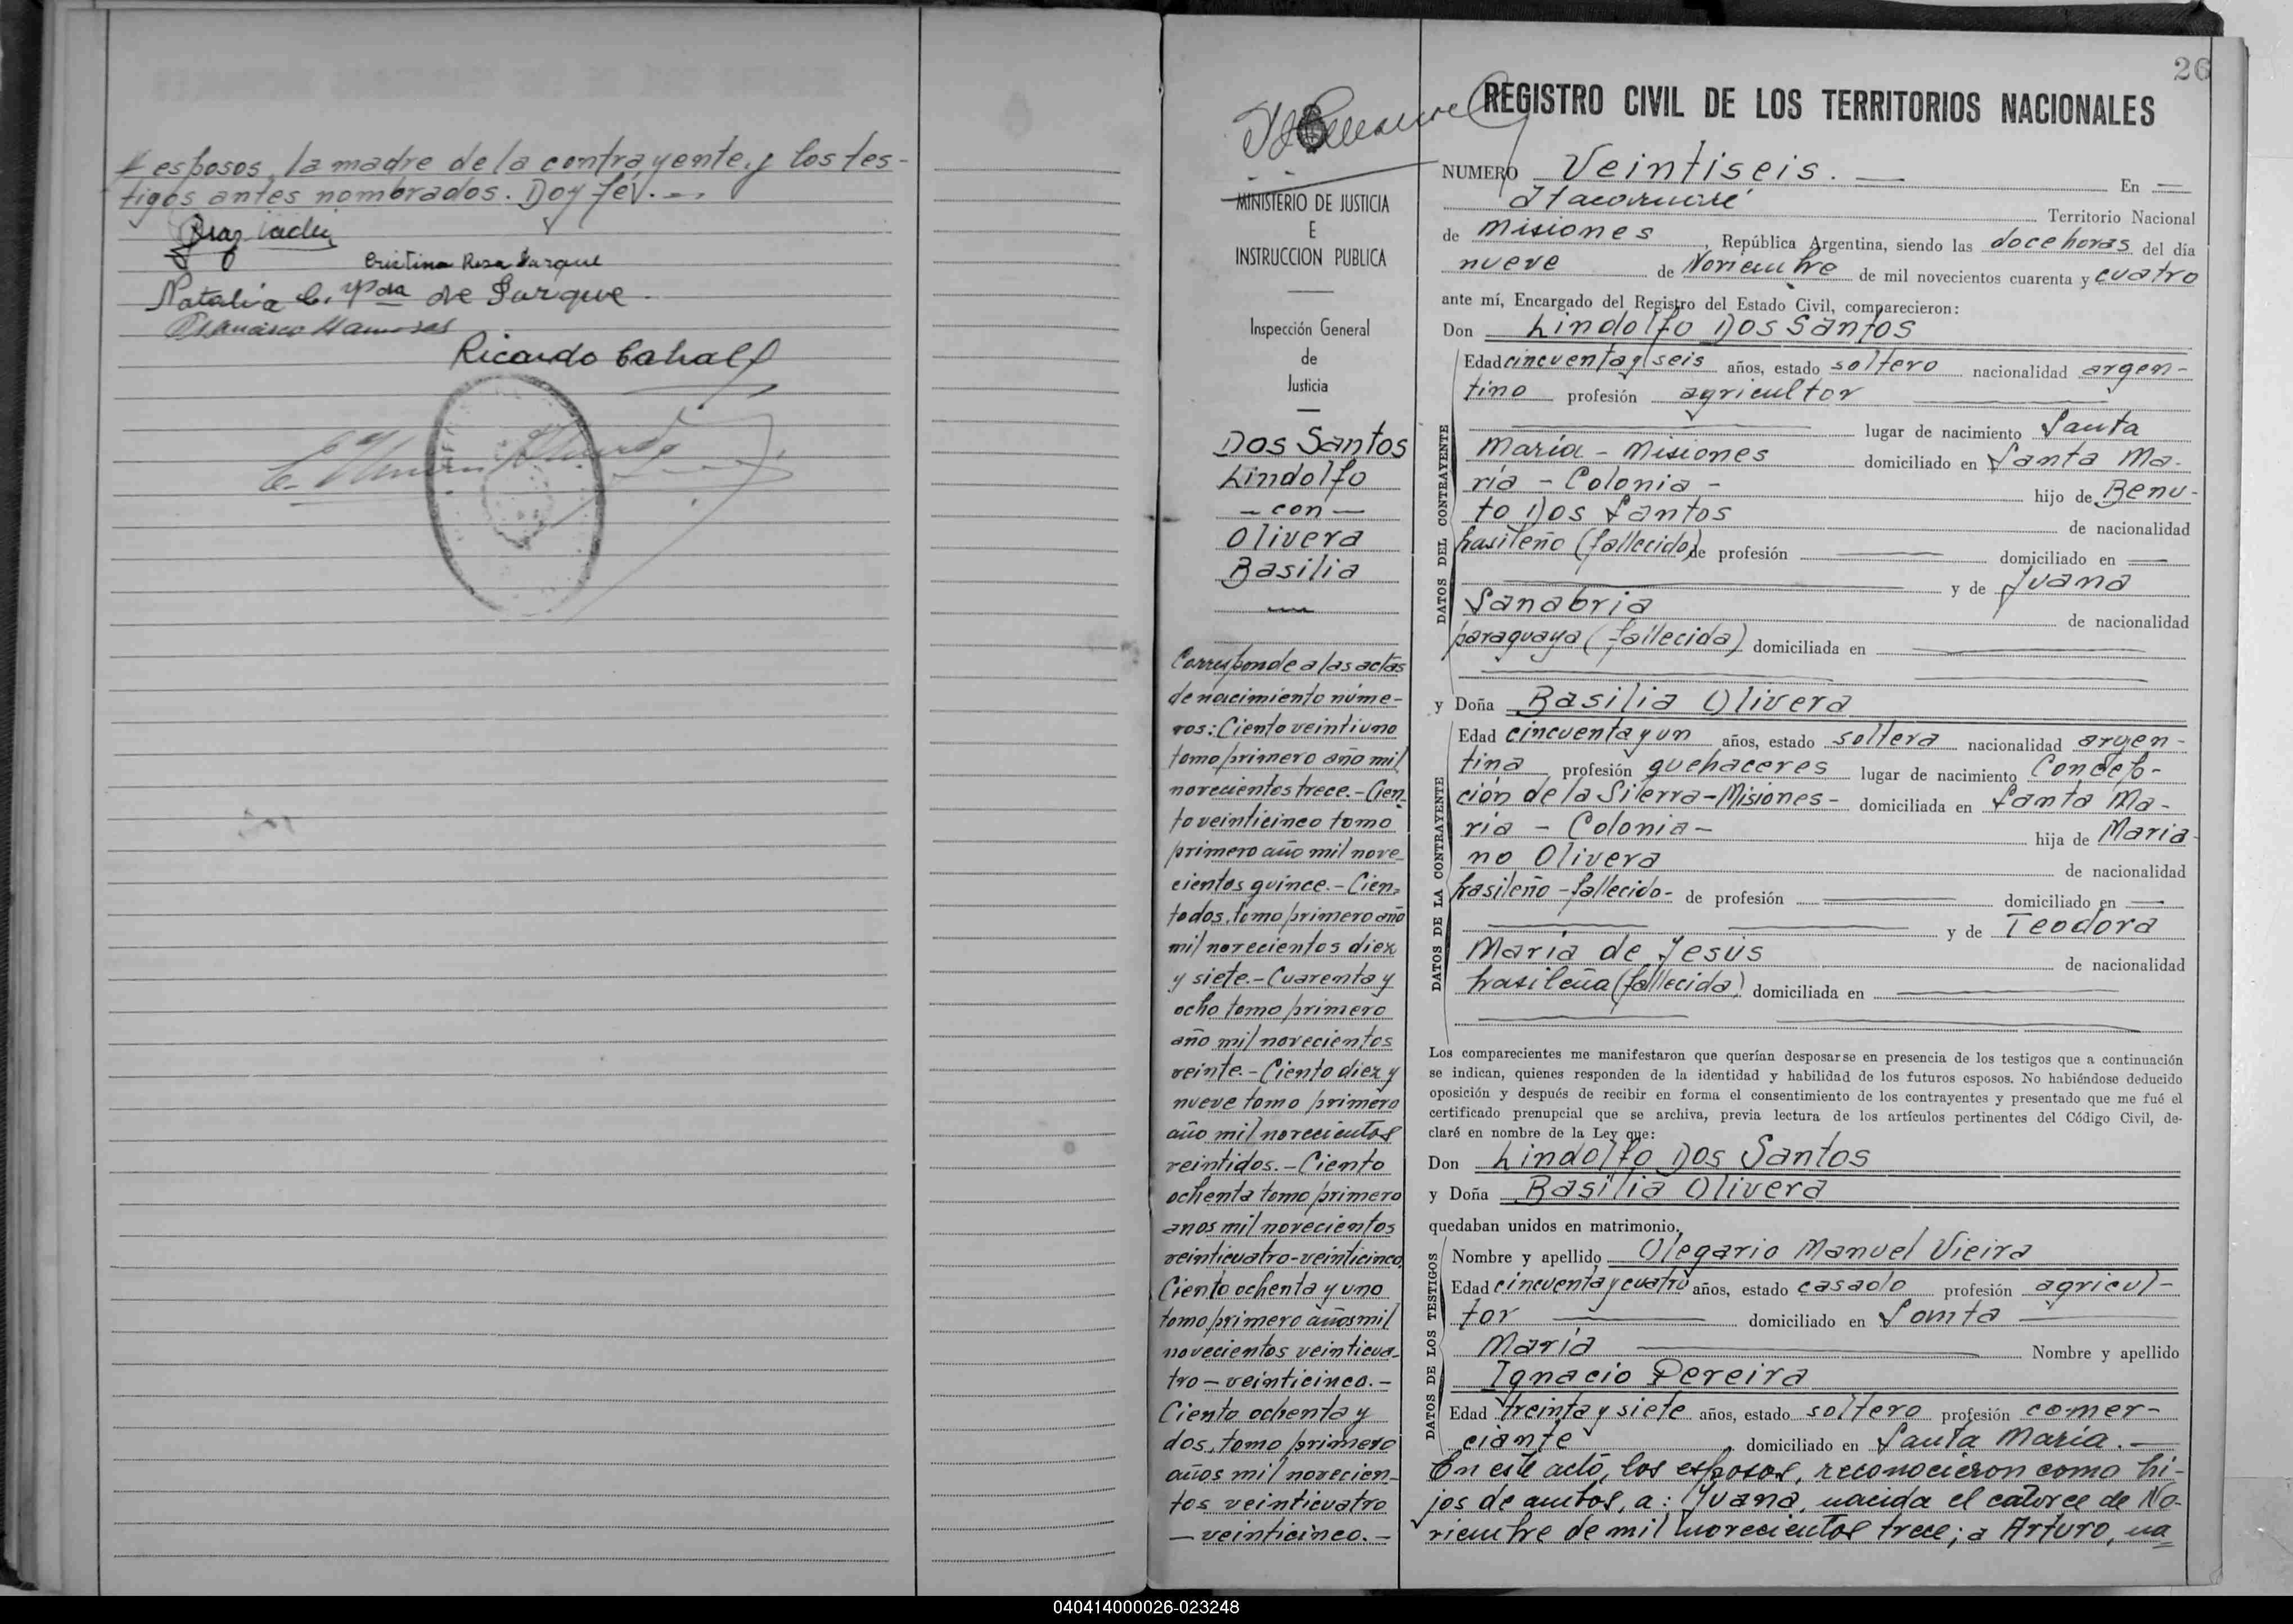 esposos, la madre de la contrayente, y los tes-
tigos antes nombrados. Doy fé
Cristina Rosa Garque
Natalia C. Vda de Garque
Francisco
Ricardo Cabral
26
REGISTRO CIVIL DE LOS TERRITORIOS NACIONALES
MINISTERIO DE JUSTICIA
E
INSTRUCCION PUBLICA
Inspección General
de
Justicia
Dos Santos
Lindolfo
- con -
Olivera
Basilia
Corresponde a las actas
de nacimiento núme-
ros: Ciento veintiuno
tomo primero año mil
novecientos trece.- Cien-
to veinticinco tomo
primero año mil nove-
cientos quince.- Cien-
to dos, tomo primero año
mil novecientos diez
y siete.- Cuarenta y
ocho tomo primero
año mil novecientos
veinte.- Ciento diez y
nueve tomo primero
año mil novecientos
veintidos.- Ciento
ochenta tomo primero
anos mil novecientos
veinticuatro-veinticinco
Ciento ochenta y uno
tomo primero años mil
novecientos veinticua-
tro - veinticinco.-
Ciento ochenta y
dos, tomo primero
años mil novecien-
tos veinticuatro
- veinticinco.-
NUMERO Veintiseis. — En —
Itacaruaré Territorio Nacional
de Misiones, República Argentina, siendo las doce horas del día
nueve de Noviembre de mil novecientos cuarenta y cuatro
ante mí, Encargado del Registro del Estado Civil, comparecieron:
Don Lindolfo Dos Santos
DATOS DEL CONTRAYENTE
Edad cincuenta y seis años, estado soltero nacionalidad argen-
tino profesión agricultor
lugar de nacimiento Santa
María - Misiones domiciliado en Santa Ma-
ría - Colonia - hijo de Benu-
to Dos Santos de nacionalidad
brasileño (fallecido) de profesión — domiciliado en —
y de Juana
Sanabria de nacionalidad
paraguaya (fallecida) domiciliada en
y Doña Basilia Olivera
DATOS DE LA CONTRAYENTE
Edad cincuenta y un años, estado soltera nacionalidad argen-
tina profesión quehaceres lugar de nacimiento Concep-
ción de la Sierra - Misiones - domiciliada en Santa Ma-
ría - Colonia - hija de Maria-
no Olivera de nacionalidad
brasileño - fallecido - de profesión — domiciliado en —
y de Teodora
María de Jesús de nacionalidad
brasileña (fallecida) domiciliada en
Los comparecientes me manifestaron que querían desposarse en presencia de los testigos que a continuación
se indican, quienes responden de la identidad y habilidad de los futuros esposos. No habiéndose deducido
oposición y después de recibir en forma el consentimiento de los contrayentes y presentado que me fué el
certificado prenupcial que se archiva, previa lectura de los artículos pertinentes del Código Civil, de-
claré en nombre de la Ley que:
Don Lindolfo Dos Santos
y Doña Basilia Olivera
quedaban unidos en matrimonio.
DATOS DE LOS TESTIGOS
Nombre y apellido Olegario Manuel Vieira
Edad cincuenta y cuatro años, estado casado profesión agricul-
tor domiciliado en Santa
María Nombre y apellido
Ignacio Pereira
Edad treinta y siete años, estado soltero profesión comer-
ciante, domiciliado en Santa María.-
En este acto, los esposos, reconocieron como hi-
jos de ambos, a: Juana, nacida el catorce de No-
viembre de mil novecientos trece; a Arturo, na
040414000026-023248